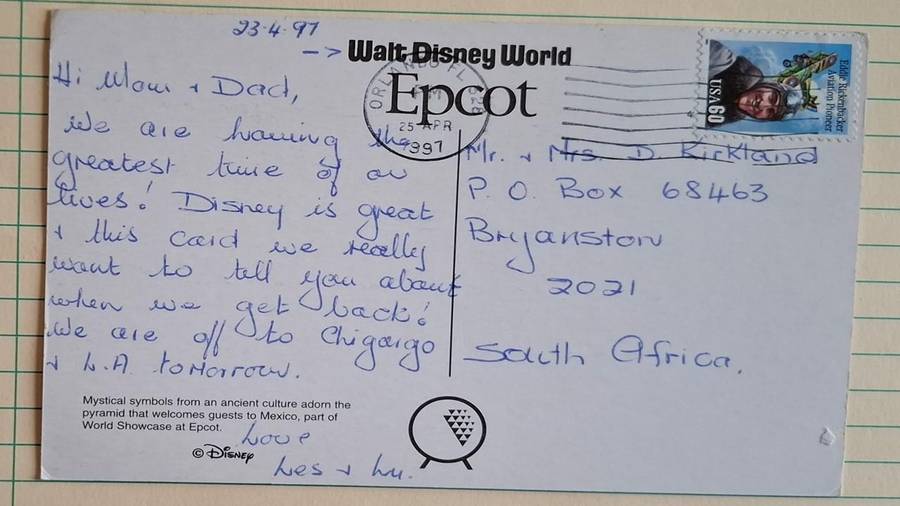 23.4.97
→ Walt Disney World
Epcot
ORLANDO FL 328
25 APR
1997
Eddie Rickenbacker
Aviation Pioneer
USA60
Hi Mom + Dad,
We are having the
greatest time of ou
lives! Disney is great
+ this card we really
want to tell you about
when we get back!
We are off to Chigargo
+ L.A. tomorrow.
Love
Les + Lu.
Mr. + Mrs. D. Kirkland
P. O. Box 68463
Bryanston
2021
South Africa.
Mystical symbols from an ancient culture adorn the
pyramid that welcomes guests to Mexico, part of
World Showcase at Epcot.
© Disney